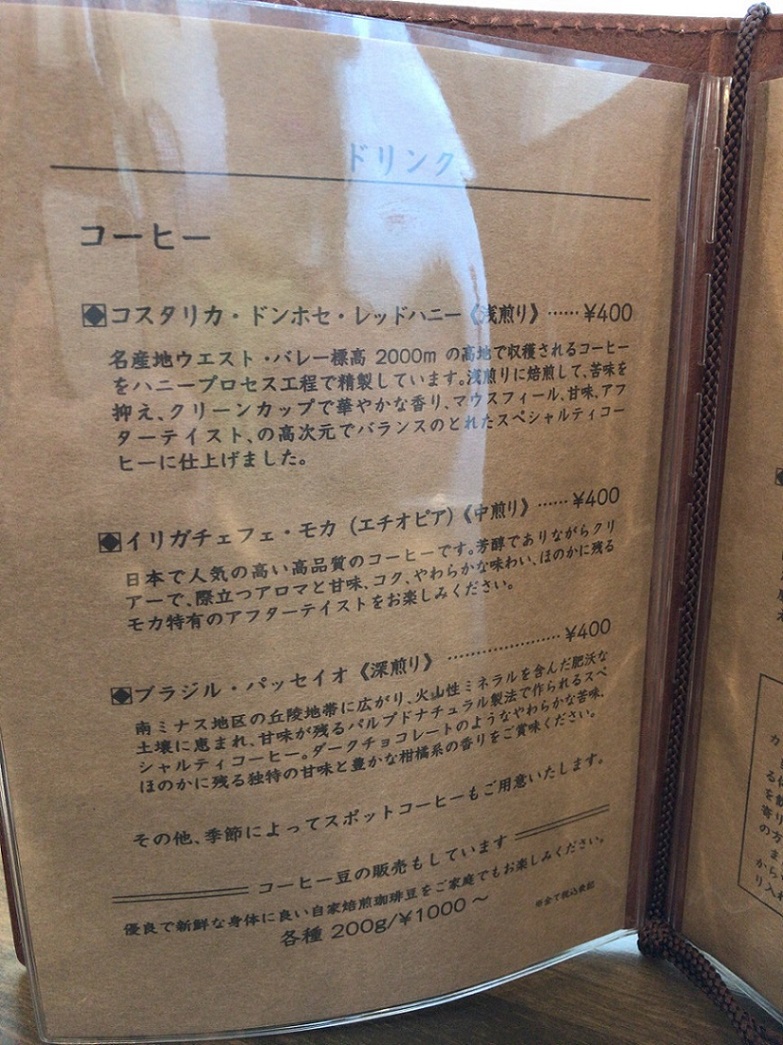 ドリンク
コーヒー
コスタリカ・ドンホセ・レッドハニー《浅煎り》……¥400
名産地ウエスト・バレー標高 2000m の高地で収穫されるコーヒー
をハニープロセス工程で精製しています。浅煎りに焙煎して、苦味を
抑え、クリーンカップで華やかな香り、マウスフィール、甘味、アフ
ターテイスト、の高次元でバランスのとれたスペシャルティコー
ヒーに仕上げました。
イリガチェフェ・モカ (エチオピア)《中煎り》……¥400
日本で人気の高い高品質のコーヒーです。芳醇でありながらクリ
アーで、際立つアロマと甘味、コク、やわらかな味わい、ほのかに残る
モカ特有のアフターテイストをお楽しみください。
ブラジル・パッセイオ《深煎り》…………………¥400
南ミナス地区の丘陵地帯に広がり、火山性ミネラルを含んだ肥沃な
土壌に恵まれ、甘味が残るパルプドナチュラル製法で作られるスペ
シャルティコーヒー。ダークチョコレートのようなやわらかな苦味、
ほのかに残る独特の甘味と豊かな柑橘系の香りをご賞味ください。
その他、季節によってスポットコーヒーもご用意いたします。
コーヒー豆の販売もしています
優良で新鮮な身体に良い自家焙煎珈琲豆をご家庭でもお楽しみください。
各種 200g/¥1000 〜